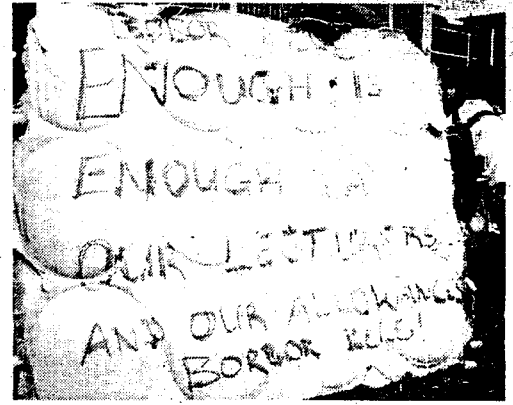 BORBOR
ENOUGH IS
ENOUGH
OUR LECTURERS
AND OUR ALLOWANCES
BORBOR